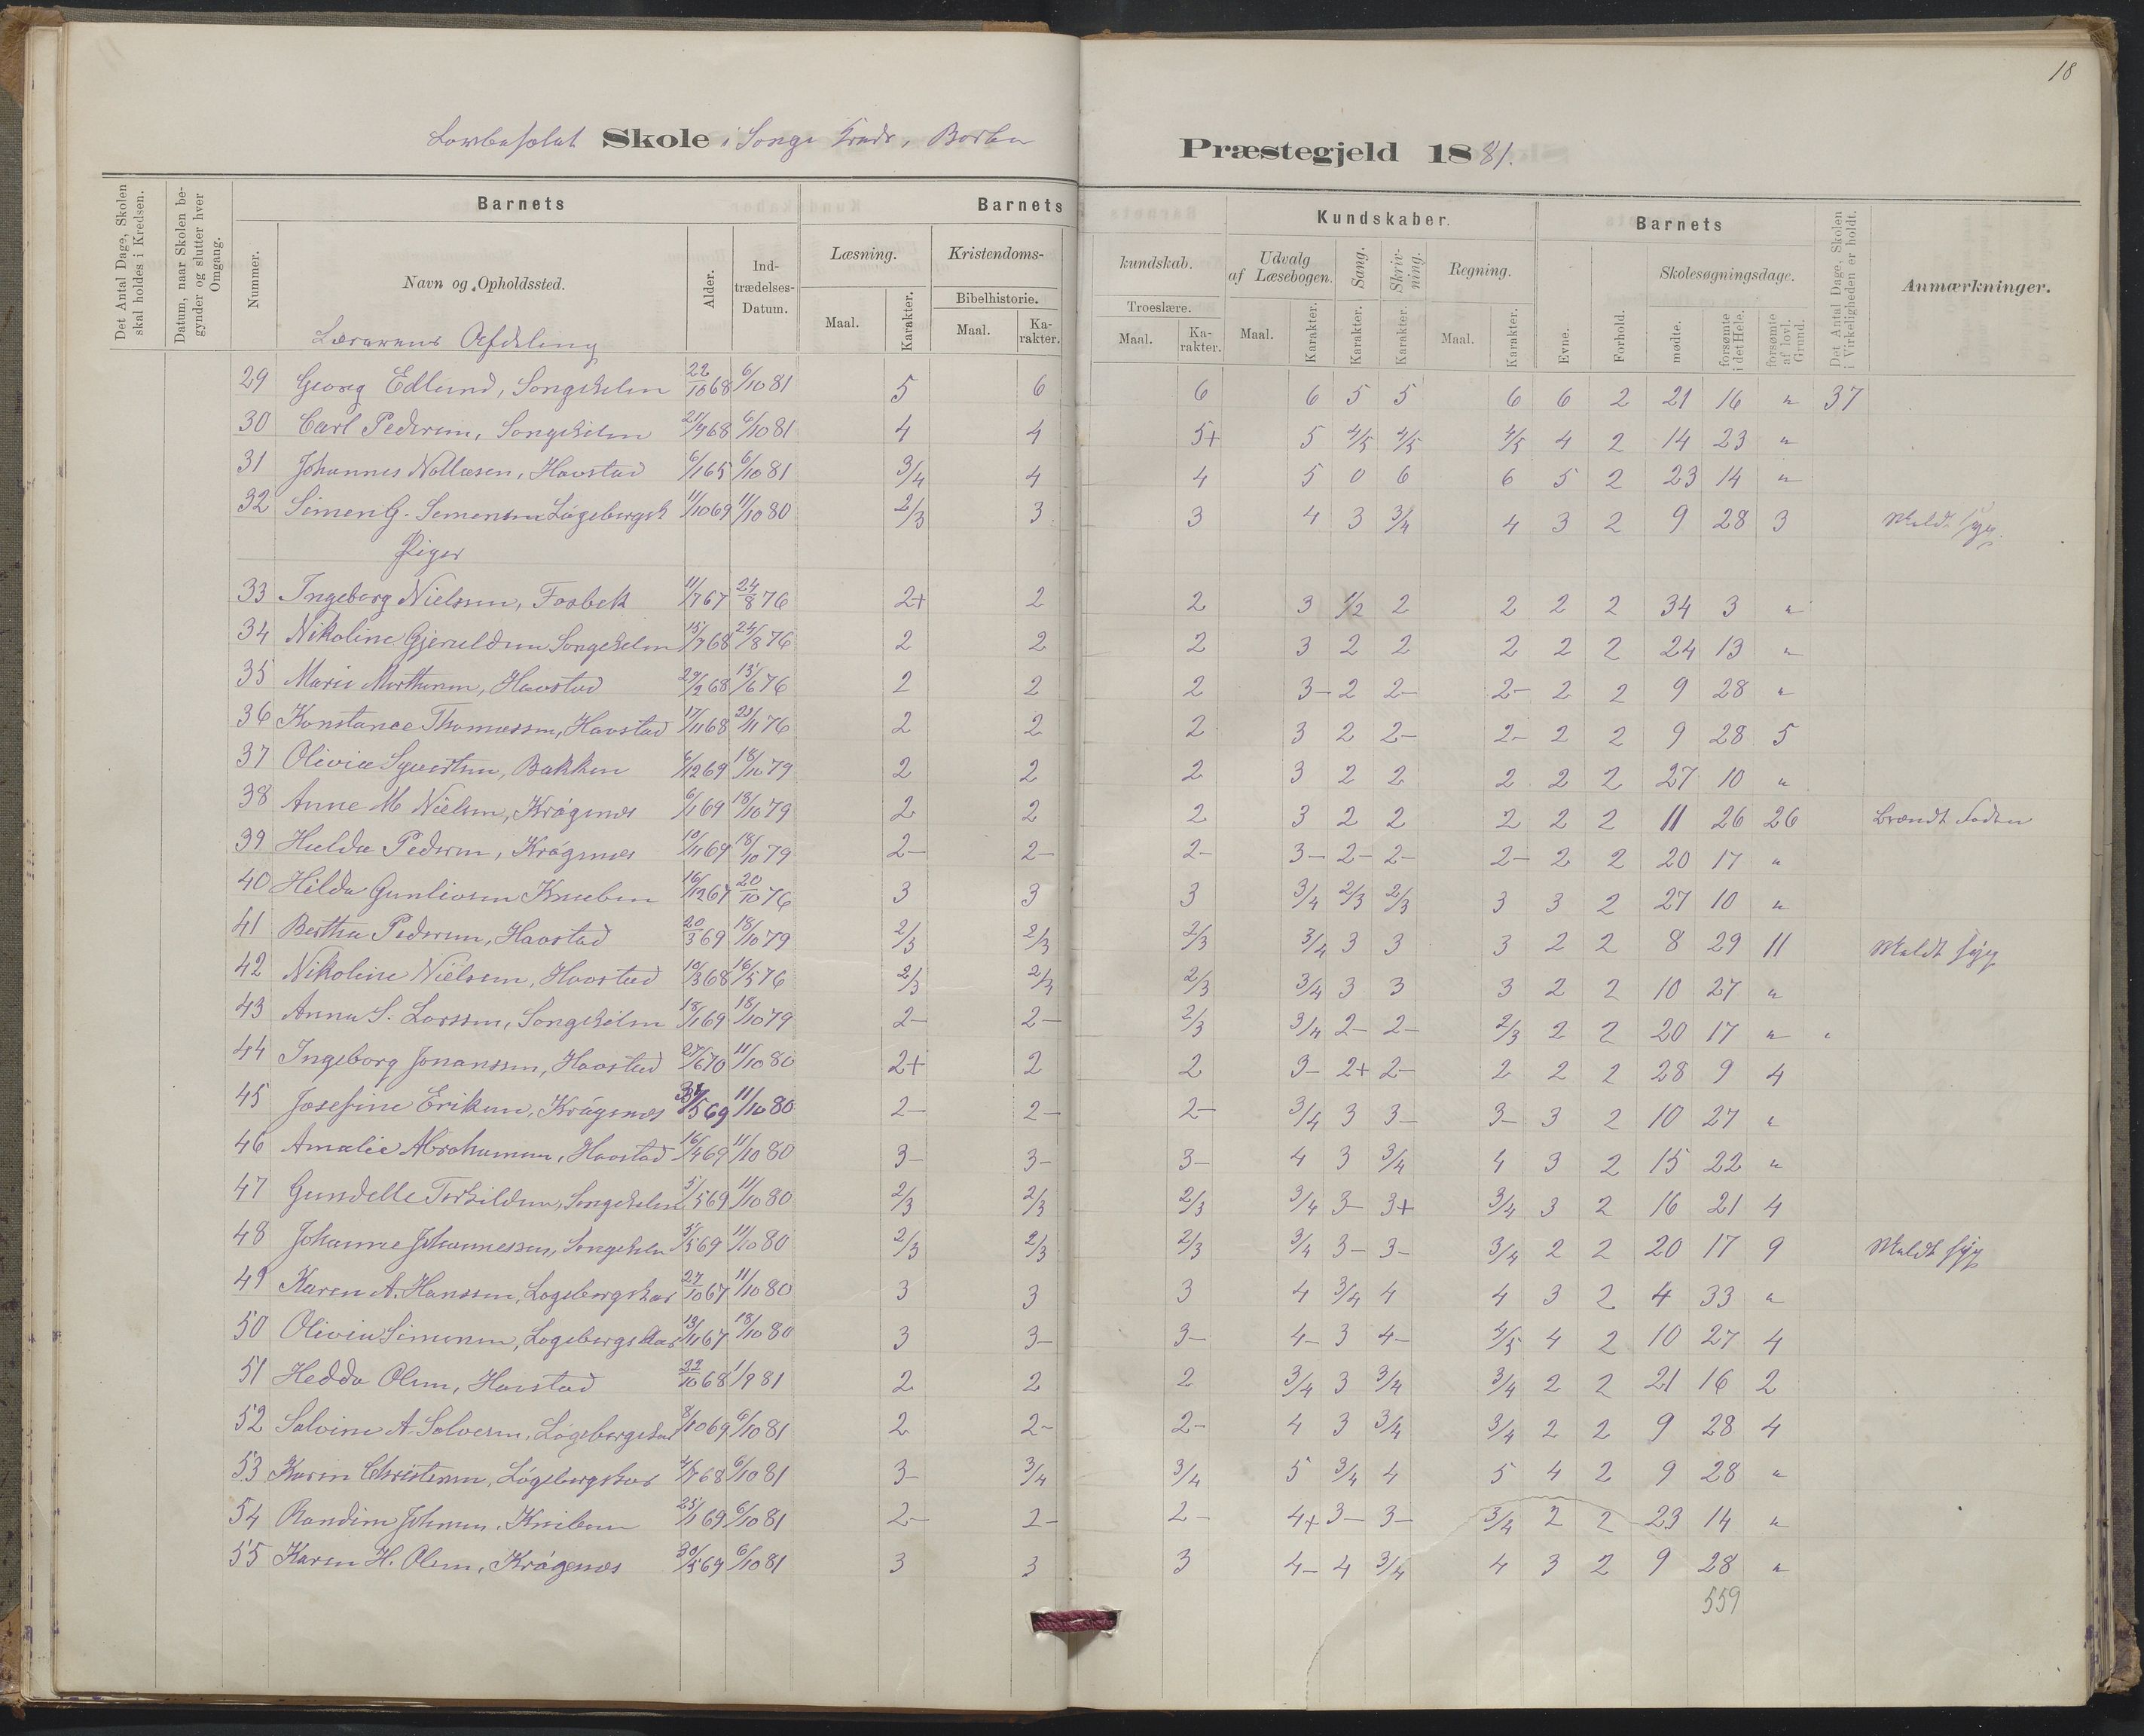 18
Skole i Songe Kreds, Præstegjeld 1881.
Det Antal Dage, Skolen skal holdes i Kredsen.
Datum, naar Skolen begynder og slutter hver Omgang.
Barnets
Nummer.
Navn og Opholdssted.
Alder.
Indtrædelses-Datum.
Barnets Kundskaber.
Læsning.
Maal.
Karakter.
Kristendomskundskab.
Bibelhistorie.
Maal.
Karakter.
Troeslære.
Maal.
Karakter.
Udvalg af Læsebogen.
Maal.
Karakter.
Sang.
Karakter.
Skrivning.
Karakter.
Regning.
Maal.
Karakter.
Barnets
Evne.
Forhold.
Skolesøgningsdage.
mødte.
forsømte i det Hele.
forsømte af lovl. Grund.
Det Antal Dage, Skolen i Virkeligheden er holdt.
Anmærkninger.
Lærerens Afdeling
29 Georg Edlund, Songekilen 22/10 68 6/10 81 5 6 6 6 5 5 6 6 2 21 16 " 37
30 Carl Pedersen, Songekilen 21/7 68 6/10 81 4 4 5+ 5 4/5 4/5 4/5 4 2 14 23 "
31 Johannes Hovstad 6/1 65 6/10 81 3/4 4 4 5 0 6 6 5 2 23 14 "
32 Simen G. Simensen Løgebergsk 11/10 69 11/10 80 2/3 3 3 4 3 3/4 4 3 2 9 28 3 Meldt syg.
Piger
33 Ingeborg Nielsen, Fosbek 11/7 67 24/8 76 2+ 2 2 3 1/2 2 2 2 2 34 3 "
34 Nikoline Gjeruldsen Songekilen 15/7 68 24/8 76 2 2 2 3 2 2 2 2 2 24 13 "
35 Marie Morthensen, Hovstad 29/2 68 13/6 76 2 2 2 3- 2 2- 2- 2 2 9 28 "
36 Konstance Thomassen, Hovstad 17/11 68 23/11 76 2 2 2 3 2 2- 2- 2 2 9 28 5
37 Olivia Syvertsen, Bakken 6/12 69 18/10 79 2 2 2 3 2 2 2 2 2 27 10 "
38 Anne M Nielsen, Krøgenes 6/1 69 18/10 79 2 2 2 3 2 2 2 2 2 11 26 26 Brændt Foden
39 Hulda Pedersen, Krøgenes 10/11 69 18/10 79 2- 2- 2- 3- 2- 2- 2- 2 2 20 17 "
40 Hilda Gunliosen Knuben 16/12 67 20/10 76 3 3 3 3/4 2/3 2/3 3 3 2 27 10 "
41 Bertha Pedersen, Hovstad 20/3 69 18/10 79 2/3 2/3 2/3 3/4 3 3 3 2 2 8 29 11 Meldt syg
42 Nikoline Nielsen, Hovstad 10/3 68 16/5 76 2/3 2/3 2/3 3/4 3 3 3 2 2 10 27 "
43 Anna S. Larssen, Songekilen 18/1 69 18/10 79 2- 2- 2/3 3/4 2- 2- 2/3 2 2 20 17 "
44 Ingeborg Jonanssen, Hovstad 27/6 70 11/10 80 2+ 2 2 3- 2+ 2- 2 2 2 28 9 4
45 Josefine Eriksen, Krøgenes 31/5 69 11/10 80 2- 2- 2- 3/4 3 3- 3- 3 2 10 27 "
46 Amalie Abrahamsen, Hovstad 16/4 69 11/10 80 3- 3- 3- 4 3 3/4 4 3 2 15 22 "
47 Gundelle Terkildsen, Songekilen 5/5 69 11/10 80 2/3 2/3 2/3 3/4 3- 3+ 3/4 3 2 16 21 4
48 Johanne Johannessen, Songekilen 5/5 69 11/10 80 2/3 2/3 2/3 3/4 3- 3- 3/4 2 2 20 17 9 Meldt syg
49 Karen A. Hanssen, Løgebergskar 27/10 67 11/10 80 3 3 3 4 3/4 4 4 3 2 4 33 "
50 Olivia Simensen, Løgebergskar 13/11 67 18/10 80 3 3- 3- 4- 3 4- 4/5 4 2 10 27 4
51 Hedda Olsen, Hovstad 22/10 68 1/9 81 2 2 2 3/4 3 3/4 3/4 2 2 21 16 2
52 Solvine A. Solvesen, Løgebergskar 8/10 69 6/10 81 2 2- 2- 4 3 3/4 3/4 2 2 9 28 4
53 Karen Christensen, Løgebergskar 4/7 68 6/10 81 3- 3/4 3/4 5 3/4 4 5 4 2 9 28 "
54 Randine Johnsen, Kniben 25/1 69 6/10 81 2- 2- 2- 4+ 3- 3- 3/4 2 2 23 14 "
55 Karen H. Olsen, Krøgenes 30/5 69 6/10 81 3 3 3 4- 4 3/4 4 3 2 9 28 "
559